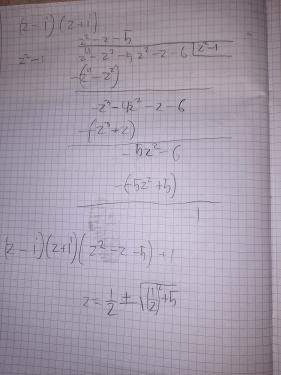 (z-1)(z+1)
z²-z-5
z²-1
z⁴-z³-5z²-z-6 | z²-1
-(z⁴-z²)
-z³-4z²-z-6
-(-z³+z)
-5z²-6
-(-5z²+5)
1
(z-1)(z+1)(z²-z-5)+1
z = 1/2 ± √((1/2)²+5)